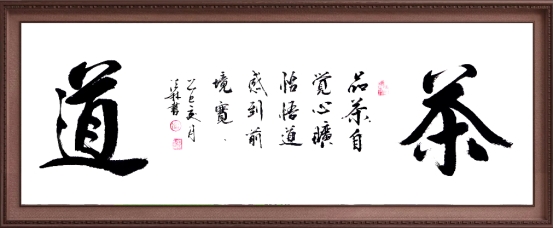 茶
品茶自
覺心曠
怡悟道
感到前
境寬
乙巳夏月
書
道